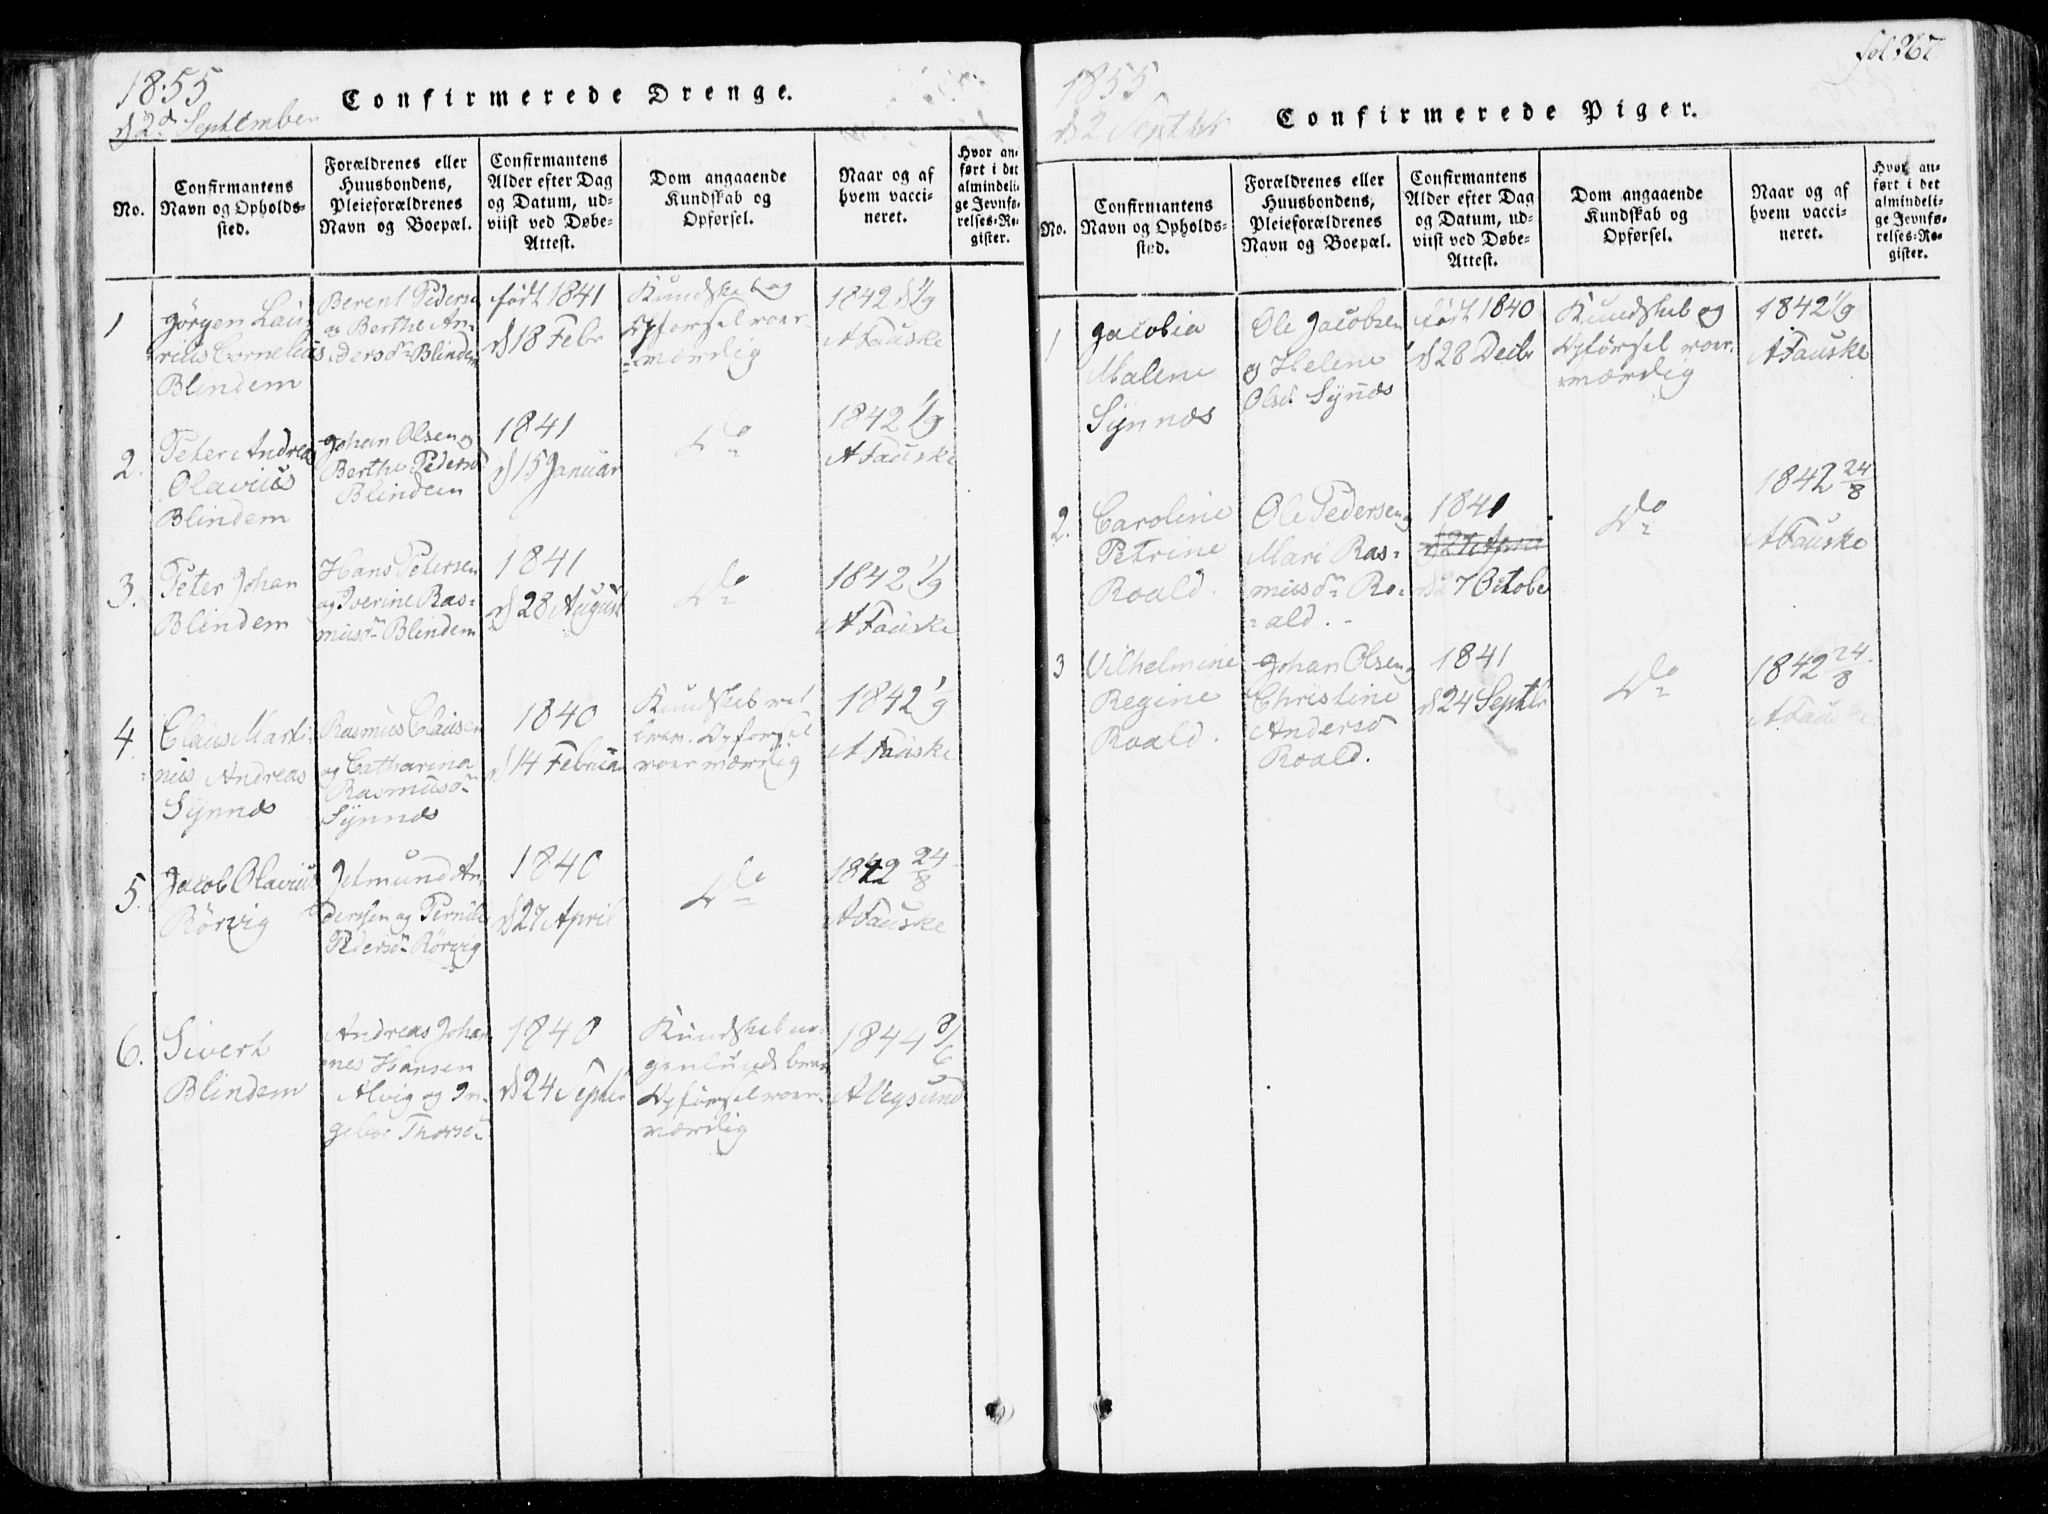 18:55
d 2d September
Confirmerede Drenge.
No.
Confirmantens
Navn og Opholds-
sted.
Forældrenes eller
Huusbondens,
Pleieforældrenes
Navn og Boepæl.
Confirmantens
Alder efter Dag
og Datum, ud-
viist ved Døbe-
Attest.
Dom angaaende
Kundskab og
Opførsel.
Naar og af
hvem vacci-
neret.
Hvor an-
ført i det
almindeli-
ge Jevnfø-
relses-Re-
gister.
1
Jörgen Lau-
rius Cornelius
Blindem
Berent Peders
og Berthe An-
dersdn Blindem
født 1841
d 18 Febr
Kundskab og
Opførsel roes-
værdig
1842 d 1/9
A Fauske
2.
Peter Andreas
Olavius
Blindem
Johan Olsen og
Berthe Pedersd
Blindem
1841
d 15 Januar
Do
1842 1/9
A Fauske
3.
Peter Johan
Blindem
Hans Petersen
og Iverine Ras-
musdn Blindem
1841
d 28 August
Do
1842 1/9
A Fauske
4.
Claus Marti-
nus Andreas
Synnæs
Rasmus Clausen
og Catharina
Rasmusdn
Synnæs
1840
d 14 Februar
Opførsel
1842 1/9
A Fauske
5.
Jacob Olavius
Rörvig
An-
dersen og Pernil
Pedersdn Rörvig
1840
d 27 April
Do
1842 24/8
A Fauske
6.
Sivert
Blindem
Andreas Johan
nes Hansen
Alvig og In-
gebor Thorsdn
1840
d 24 Septbr
Kundskab
Opførsel roes-
værdig
1844 8/6
A Vegsund
fol 267
1855
d 2 Septbr
Confirmerede Piger.
No.
Confirmantens
Navn og Opholds-
sted.
Forældrenes eller
Huusbondens,
Pleieforældrenes
Navn og Boepæl.
Confirmantens
Alder efter Dag
og Datum, ud-
viist ved Døbe-
Attest.
Dom angaaende
Kundskab og
Opførsel.
Naar og af
hvem vacci-
neret.
Hvor an-
ført i det
almindeli-
ge Jevnfø-
relses-Re-
gister.
1
Jacobia
Malene
Synnæs
Ole Jacobsen
og Helene
Olsd. Synnæs
født 1840
d 28 Decbr
Kundskab og
Opførsel roes-
værdig
1842 1/9
A Fauske
2.
Caroline
Petrine
Roald.
Ole Pedersen og
Mari Ras-
musdn Ro-
ald.
1841
d 27 April
d 27 Octobe
Do
1842 24/8
A Fauske
3
Vilhelmine
Regine
Roald.
Johan Olsen og
Christine
Andersd
Roald.
1841
d 24 Septbr
Do
1842 24/8
A Fauske